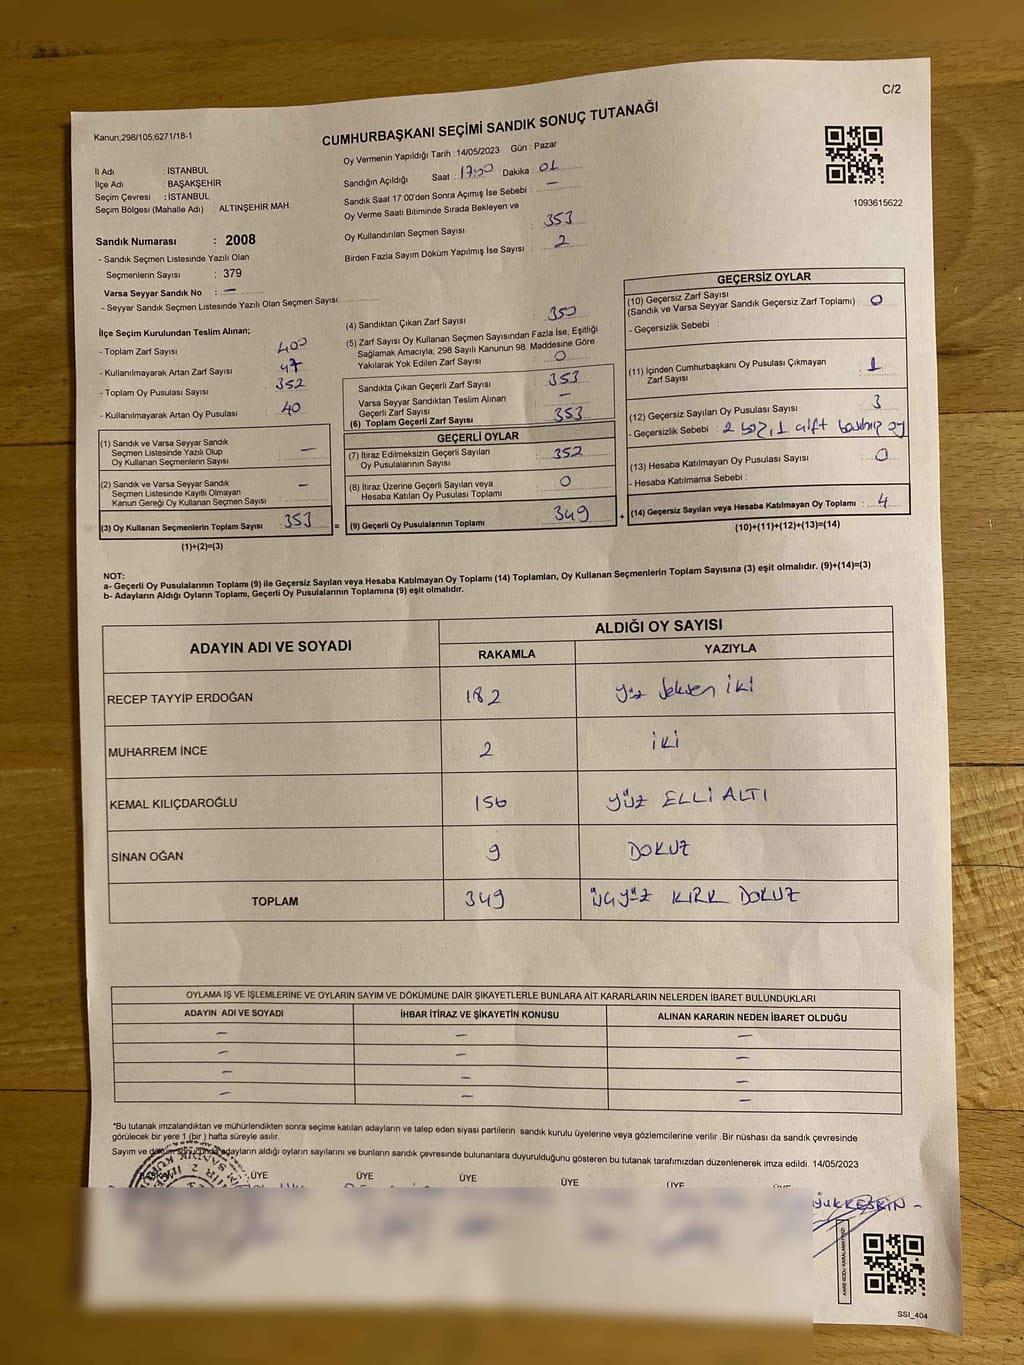 C/2
Kanun,298/105,6271/18-1
CUMHURBAŞKANI SEÇİMİ SANDIK SONUÇ TUTANAĞI
Oy Vermenin Yapıldığı Tarih : 14/05/2023 Gün : Pazar
İl Adı : İSTANBUL
İlçe Adı : BAŞAKŞEHİR
Seçim Çevresi : İSTANBUL
Seçim Bölgesi (Mahalle Adı) : ALTINŞEHİR MAH.
Sandığın Açıldığı Saat : 17:00 Dakika : 01
Sandık Saat 17:00'den Sonra Açımış İse Sebebi : —
Oy Verme Saati Bitiminde Sırada Bekleyen ve
Oy Kullandırılan Seçmen Sayısı : 353
Birden Fazla Sayım Döküm Yapılmış İse Sayısı : 2
1093615622
Sandık Numarası : 2008
- Sandık Seçmen Listesinde Yazılı Olan
Seçmenlerin Sayısı : 379
Varsa Seyyar Sandık No : —
- Seyyar Sandık Seçmen Listesinde Yazılı Olan Seçmen Sayısı:
İlçe Seçim Kurulundan Teslim Alınan;
- Toplam Zarf Sayısı : 400
- Kullanılmayarak Artan Zarf Sayısı : 47
- Toplam Oy Pusulası Sayısı : 352
- Kullanılmayarak Artan Oy Pusulası : 40
(1) Sandık ve Varsa Seyyar Sandık
Seçmen Listesinde Yazılı Olup
Oy Kullanan Seçmenlerin Sayısı : —
(2) Sandık ve Varsa Seyyar Sandık
Seçmen Listesinde Kayıtlı Olmayan
Kanun Gereği Oy Kullanan Seçmen Sayısı : —
(3) Oy Kullanan Seçmenlerin Toplam Sayısı : 353 =
(1)+(2)=(3)
(4) Sandıktan Çıkan Zarf Sayısı : 353
(5) Zarf Sayısı Oy Kullanan Seçmen Sayısından Fazla İse, Eşitliği
Sağlamak Amacıyla, 298 Sayılı Kanunun 98. Maddesine Göre
Yakılarak Yok Edilen Zarf Sayısı : 0
Sandıkta Çıkan Geçerli Zarf Sayısı : 353
Varsa Seyyar Sandıktan Teslim Alınan
Geçerli Zarf Sayısı : —
(6) Toplam Geçerli Zarf Sayısı : 353
GEÇERLİ OYLAR
(7) İtiraz Edilmeksizin Geçerli Sayılan
Oy Pusulalarının Sayısı : 352
(8) İtiraz Üzerine Geçerli Sayılan veya
Hesaba Katılan Oy Pusulası Toplamı : 0
(9) Geçerli Oy Pusulalarının Toplamı : 349 +
GEÇERSİZ OYLAR
(10) Geçersiz Zarf Sayısı
(Sandık ve Varsa Seyyar Sandık Geçersiz Zarf Toplamı) : 0
- Geçersizlik Sebebi :
(11) İçinden Cumhurbaşkanı Oy Pusulası Çıkmayan
Zarf Sayısı : 1
(12) Geçersiz Sayılan Oy Pusulası Sayısı : 3
- Geçersizlik Sebebi : 2 boş, 1 çift basılmış oy
(13) Hesaba Katılmayan Oy Pusulası Sayısı : 0
- Hesaba Katılmama Sebebi :
(14) Geçersiz Sayılan veya Hesaba Katılmayan Oy Toplamı : 4
(10)+(11)+(12)+(13)=(14)
NOT:
a- Geçerli Oy Pusulalarının Toplamı (9) ile Geçersiz Sayılan veya Hesaba Katılmayan Oy Toplamı (14) Toplamları, Oy Kullanan Seçmenlerin Toplam Sayısına (3) eşit olmalıdır. (9)+(14)=(3)
b- Adayların Aldığı Oyların Toplamı, Geçerli Oy Pusulalarının Toplamına (9) eşit olmalıdır.
ADAYIN ADI VE SOYADI
ALDIĞI OY SAYISI
RAKAMLA YAZIYLA
RECEP TAYYİP ERDOĞAN 182 yüz seksen iki
MUHARREM İNCE 2 iki
KEMAL KILIÇDAROĞLU 156 yüz ELLİ ALTI
SİNAN OĞAN 9 DOKUZ
TOPLAM 349 üçyüz KIRK DOKUZ
OYLAMA İŞ VE İŞLEMLERİNE VE OYLARIN SAYIM VE DÖKÜMÜNE DAİR ŞİKAYETLERLE BUNLARA AİT KARARLARIN NELERDEN İBARET BULUNDUKLARI
ADAYIN ADI VE SOYADI İHBAR İTİRAZ VE ŞİKAYETİN KONUSU ALINAN KARARIN NEDEN İBARET OLDUĞU
— — —
— — —
— — —
— — —
*Bu tutanak imzalandıktan ve mühürlendikten sonra seçime katılan adayların ve talep eden siyasi partilerin sandık kurulu üyelerine veya gözlemcilerine verilir .Bir nüshası da sandık çevresinde
görülecek bir yere 1 (bir ) hafta süreyle asılır.
Sayım ve döküm sonucunda adayların aldığı oyların sayılarını ve bunların sandık çevresinde bulunanlara duyurulduğunu gösteren bu tutanak tarafımızdan düzenlenerek imza edildi. 14/05/2023
ÜYE ÜYE ÜYE ÜYE ÜYE
KARE KODU KARALAMAYINIZ!
SSI_404